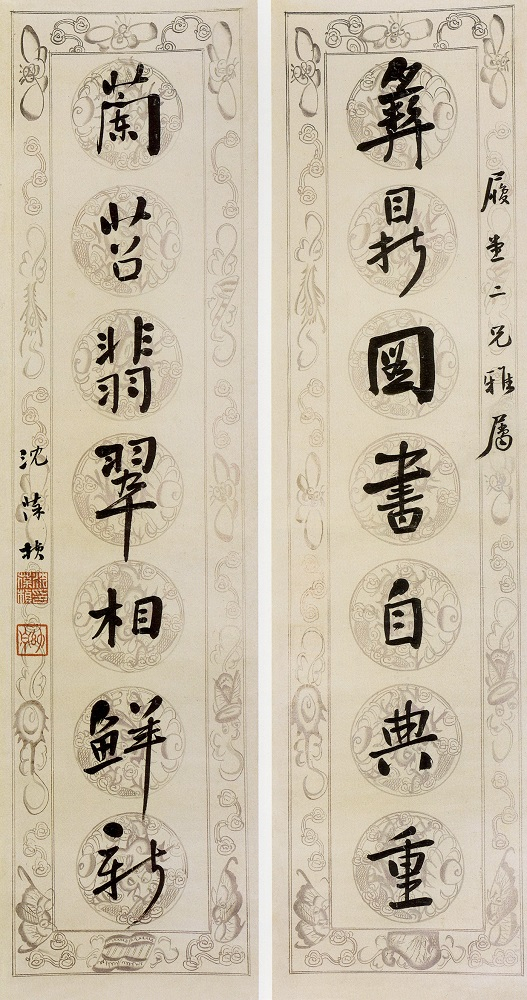 履堂二兄雅屬
彝鼎圖書自典重
蘭苕翡翠相鮮新
沈葆楨